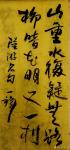 山重水復疑無路
柳暗花明又一村
陸游句